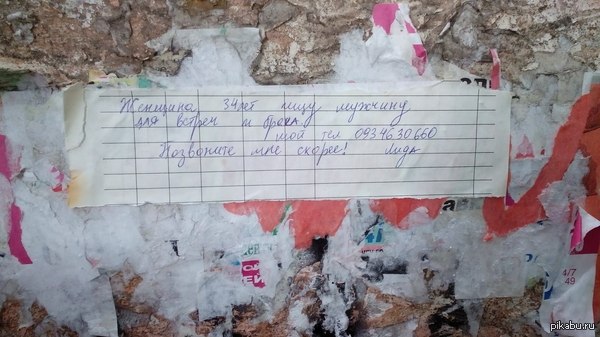 Женщина, 34 лет ищу мужчину
для встреч и брака.
мой тел 0934630660
Позвоните мне скорее! Лида
ОЙ
4/7
49
pikabu.ru